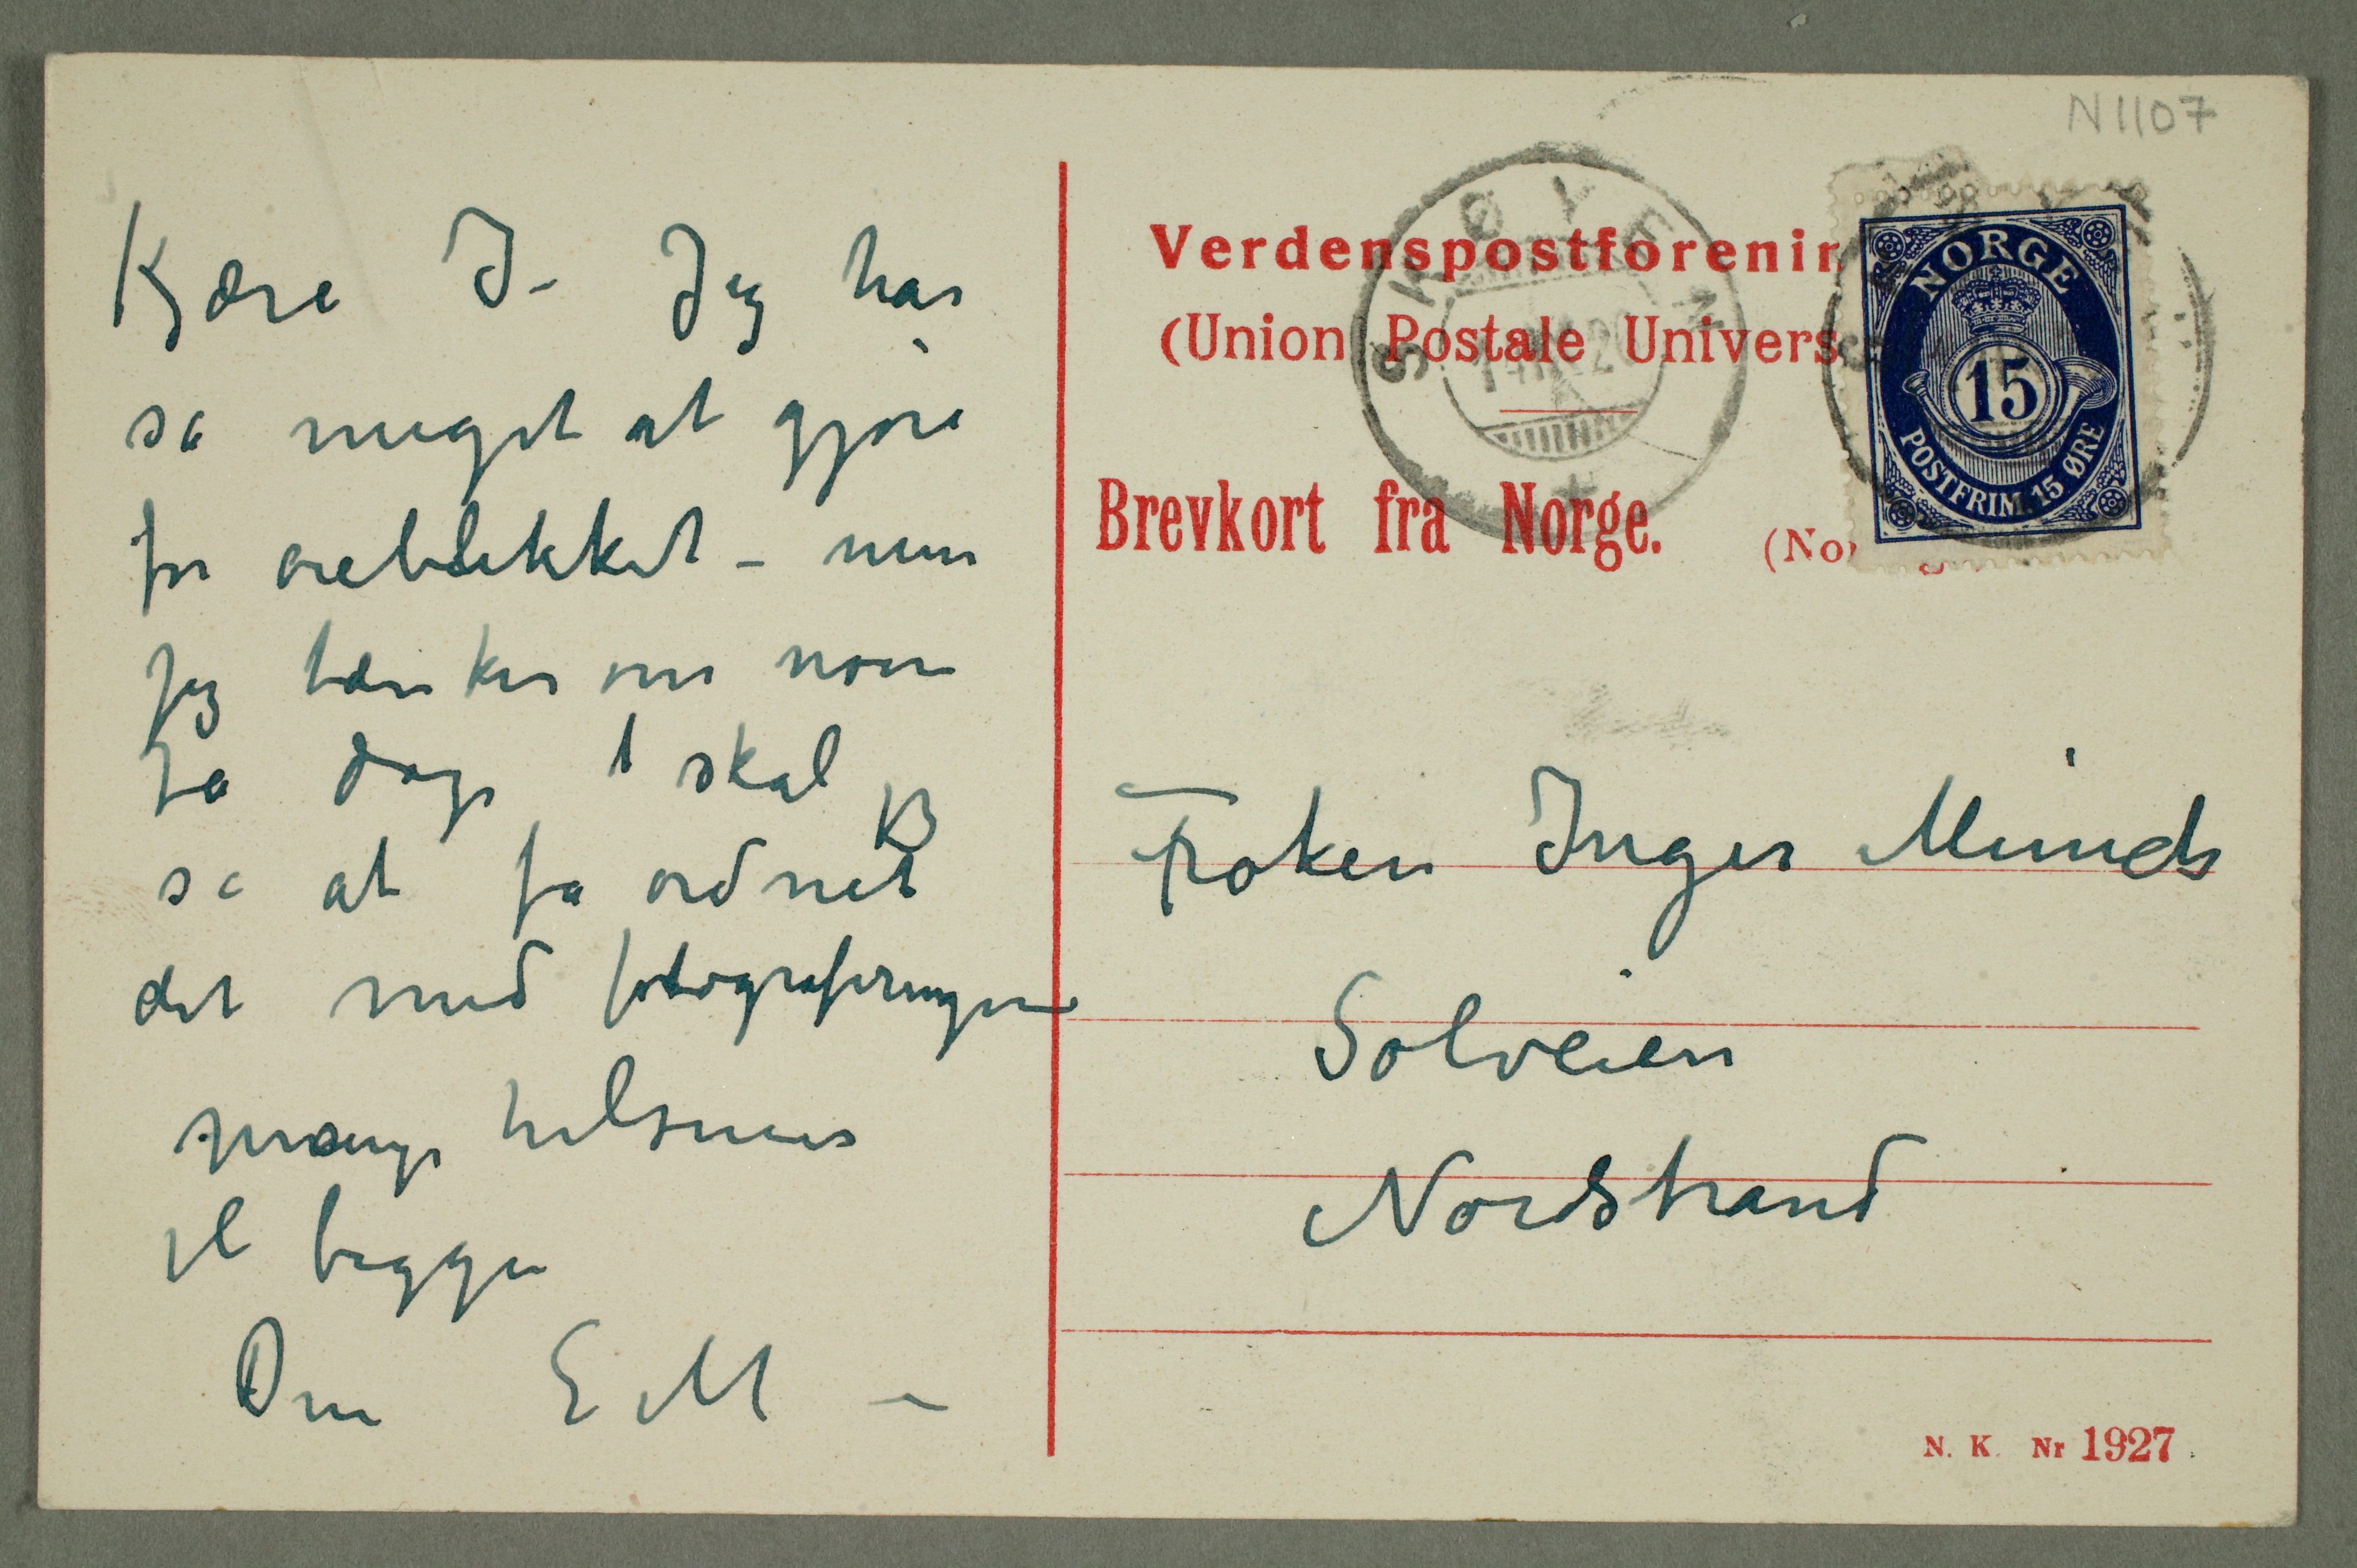 N1107
Kjære I- Jeg har
så meget at gjøre
for øieblikket – men
jeg tænker om noen
få dage skal jeg
se at få ordnet
det med fotograferingen
mange hilsener
til begge
Din E M –
Verdenspostforenin
(Union Postale Univers
Brevkort fra Norge.
(No
SKØYEN
NORGE
15
POSTFRIM. 15 ØRE
Frøken Inger Munch
Solveien
Nordstrand
N. K. Nr 1927